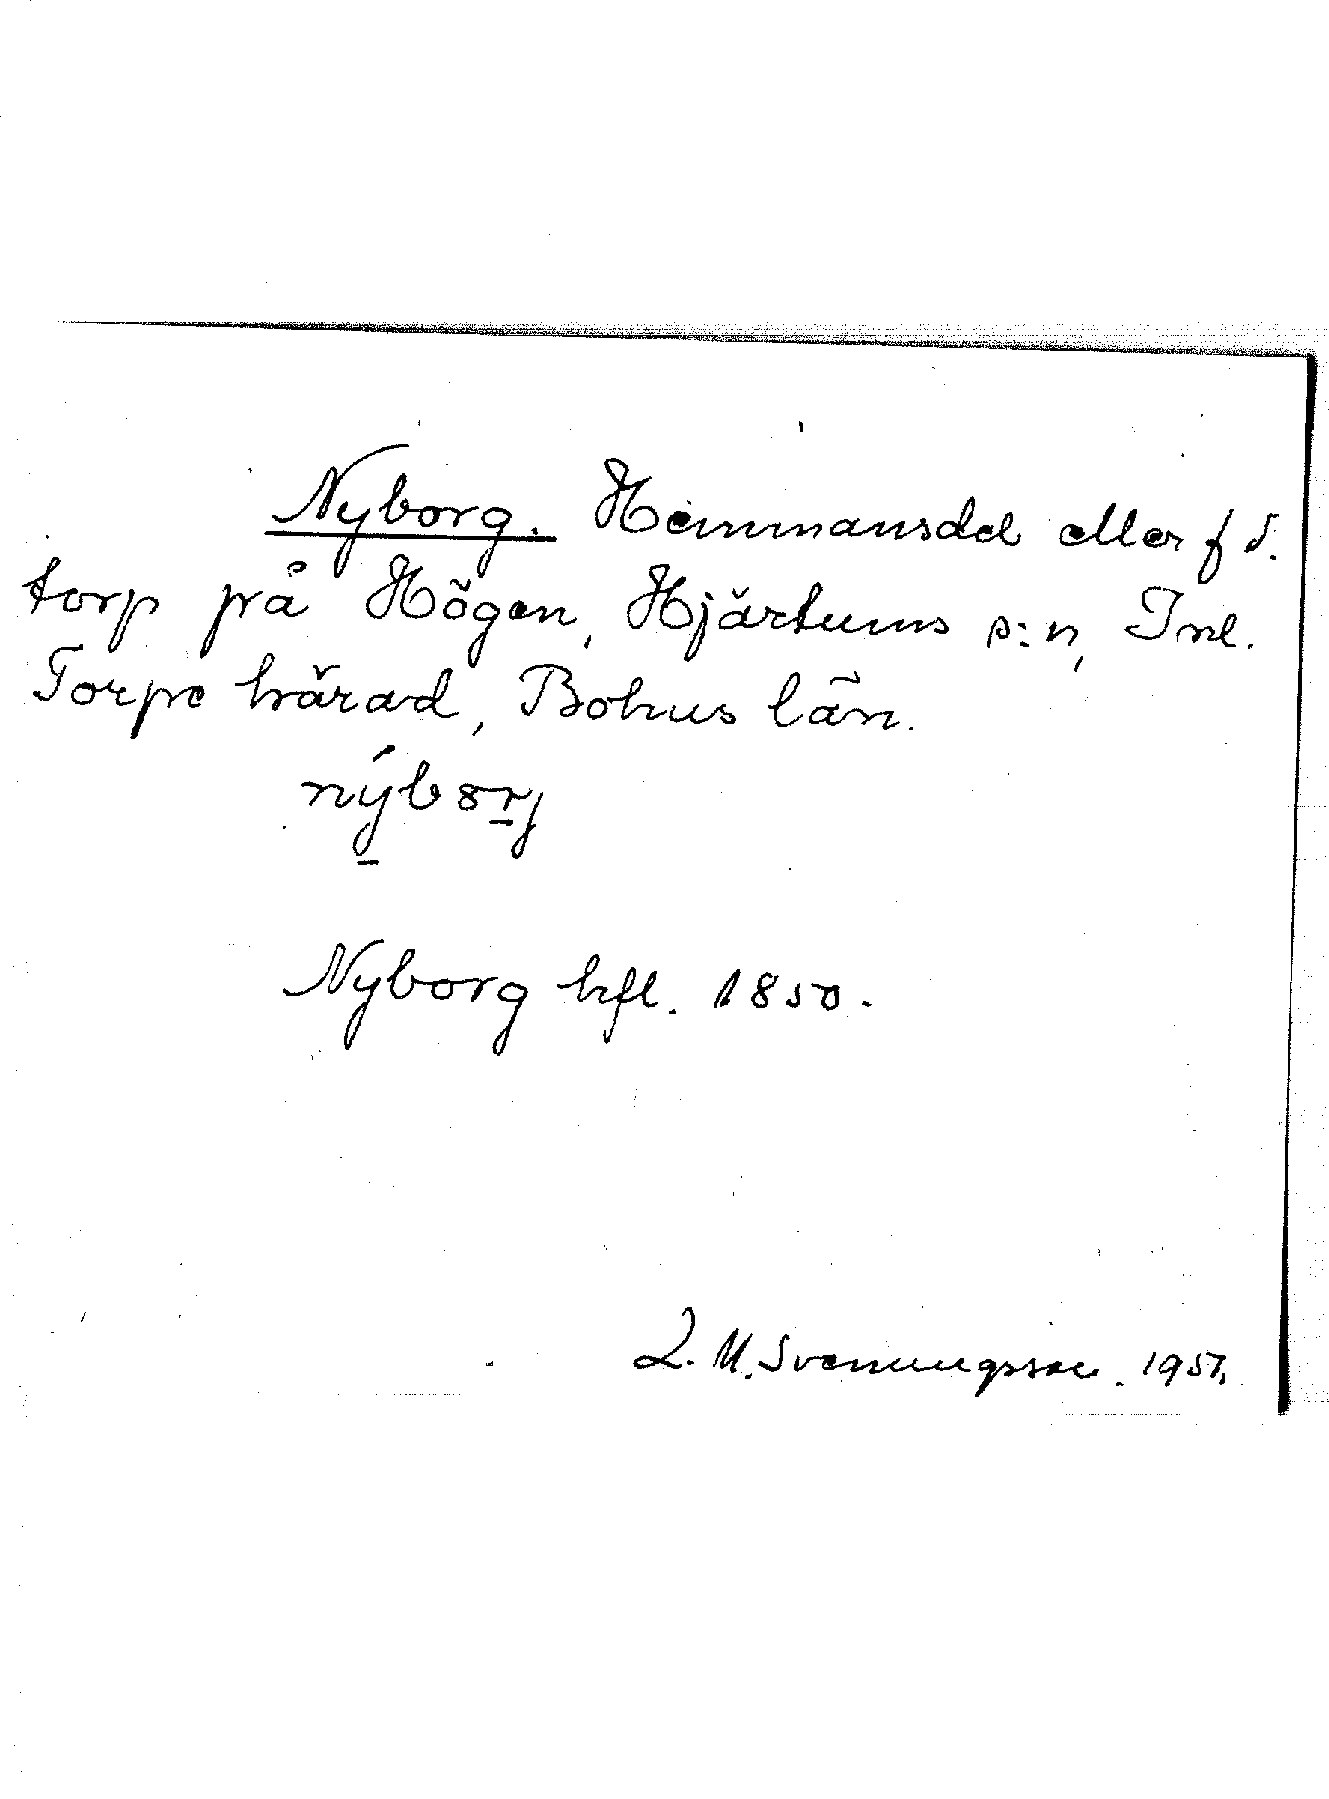 Nyborg. Hemmansdel eller f d.
torp på Högen, Hjärtums s:n, Inl.
Torpe härad, Bohus län.
Nyborg hfl. 1850.
L. M. Svenungsson. 1951.